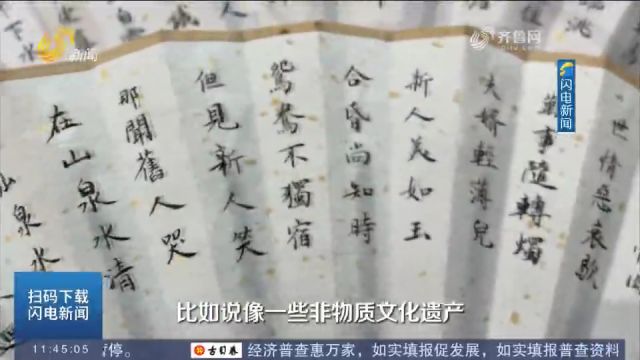 新闻
齐鲁网
闪电新闻
世情惡衰歇
萬事隨轉燭
夫婿輕薄兒
新人美如玉
合昏尚知時
鴛鴦不獨宿
但見新人笑
那聞舊人哭
在山泉水清
山泉水
比如说像一些非物质文化遗产
扫码下载
闪电新闻
11:45:05
暂停。
古贝春
经济普查惠万家，如实填报促发展，如实填报普查资料